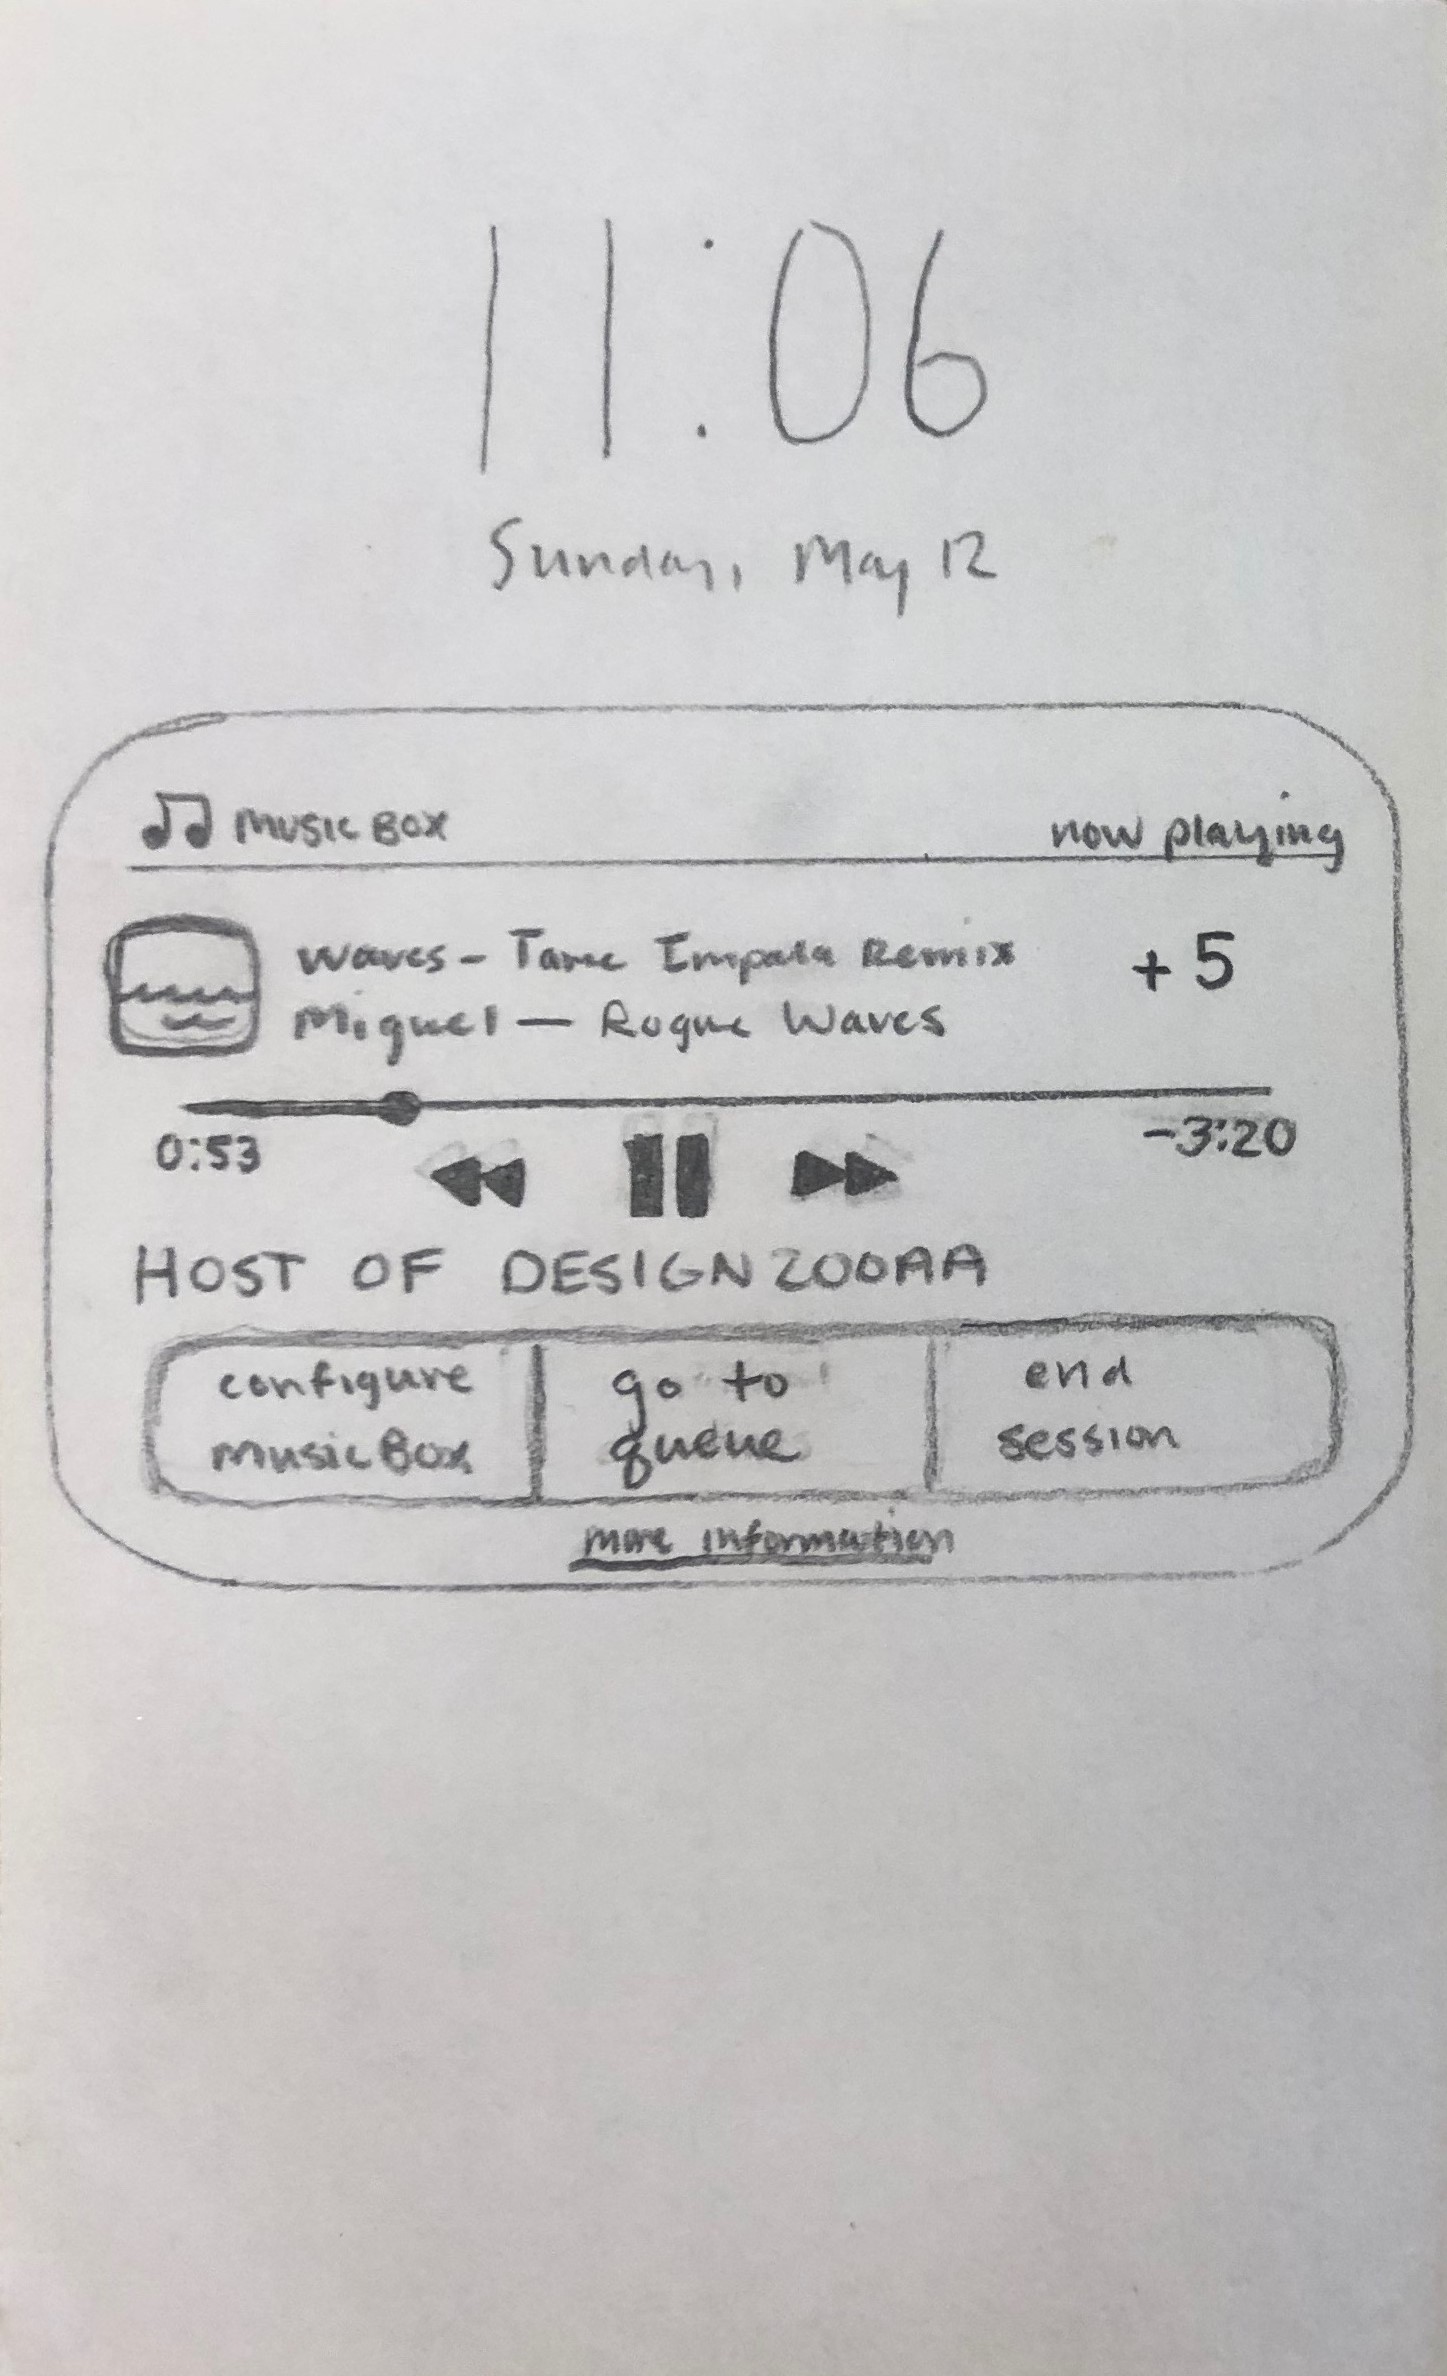 11:06
Sunday, May 12
MUSIC BOX now playing
Waves - Tame Impala Remix +5
Miguel — Rogue Waves
0:53 -3:20
HOST OF DESIGN200AA
configure go to end
MusicBox queue session
more information